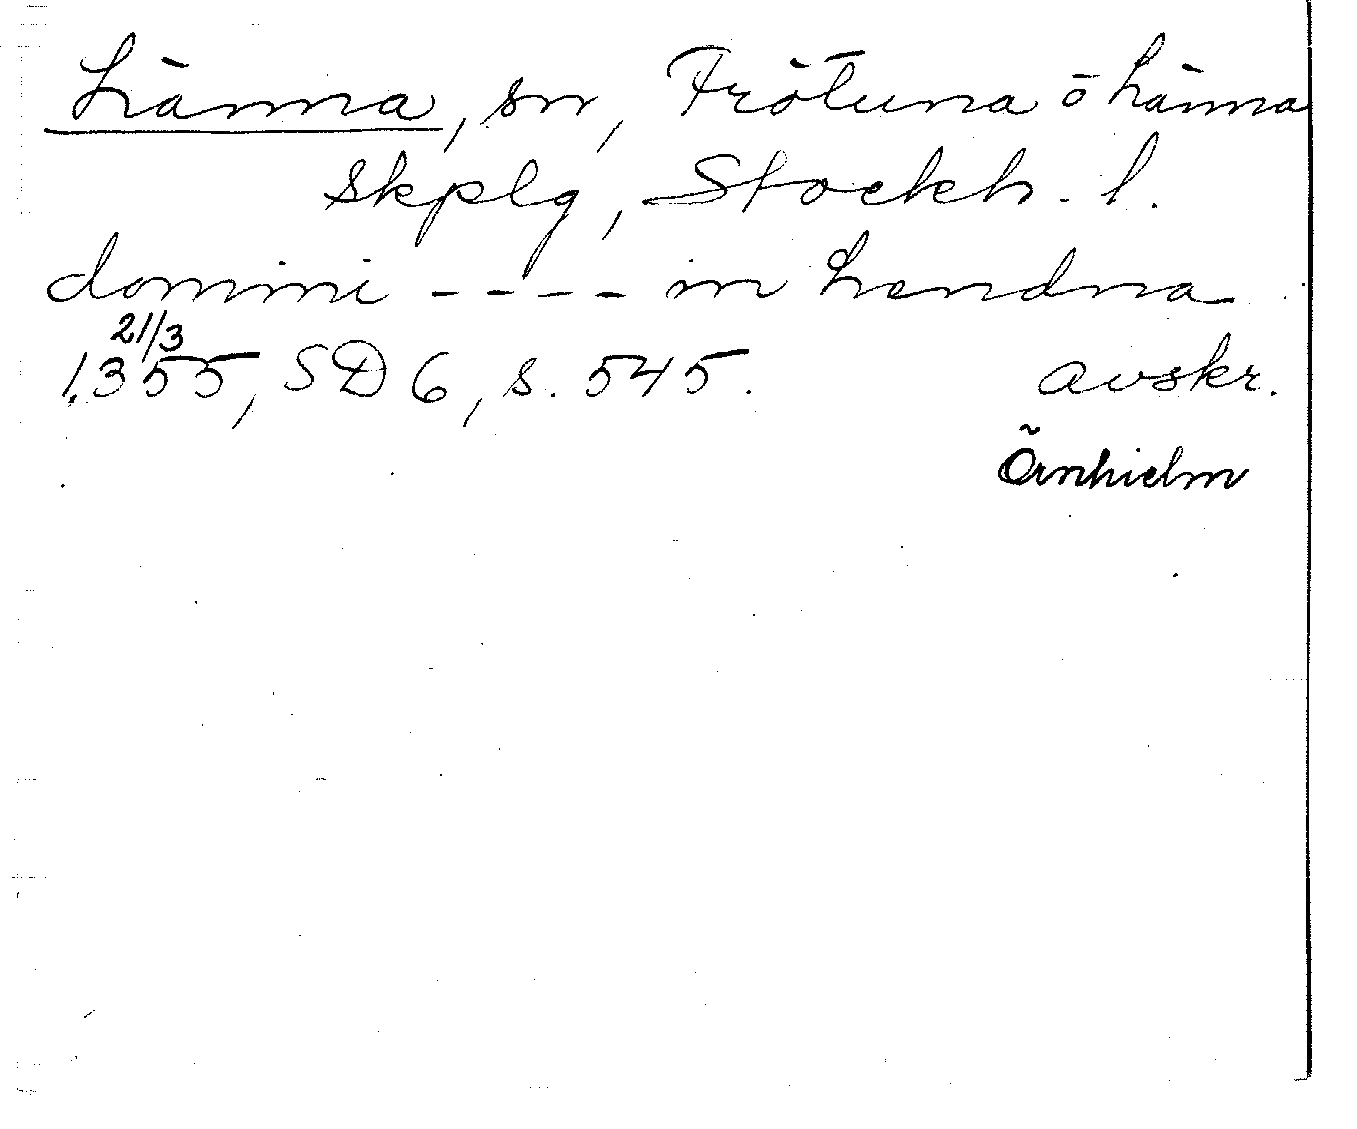 Länna, sn, Frötuna o Länna
skplg, Stockh. l.
domini ---- in Lendna
21/3
1355, SD 6, s. 545. avskr.
Örnhielm